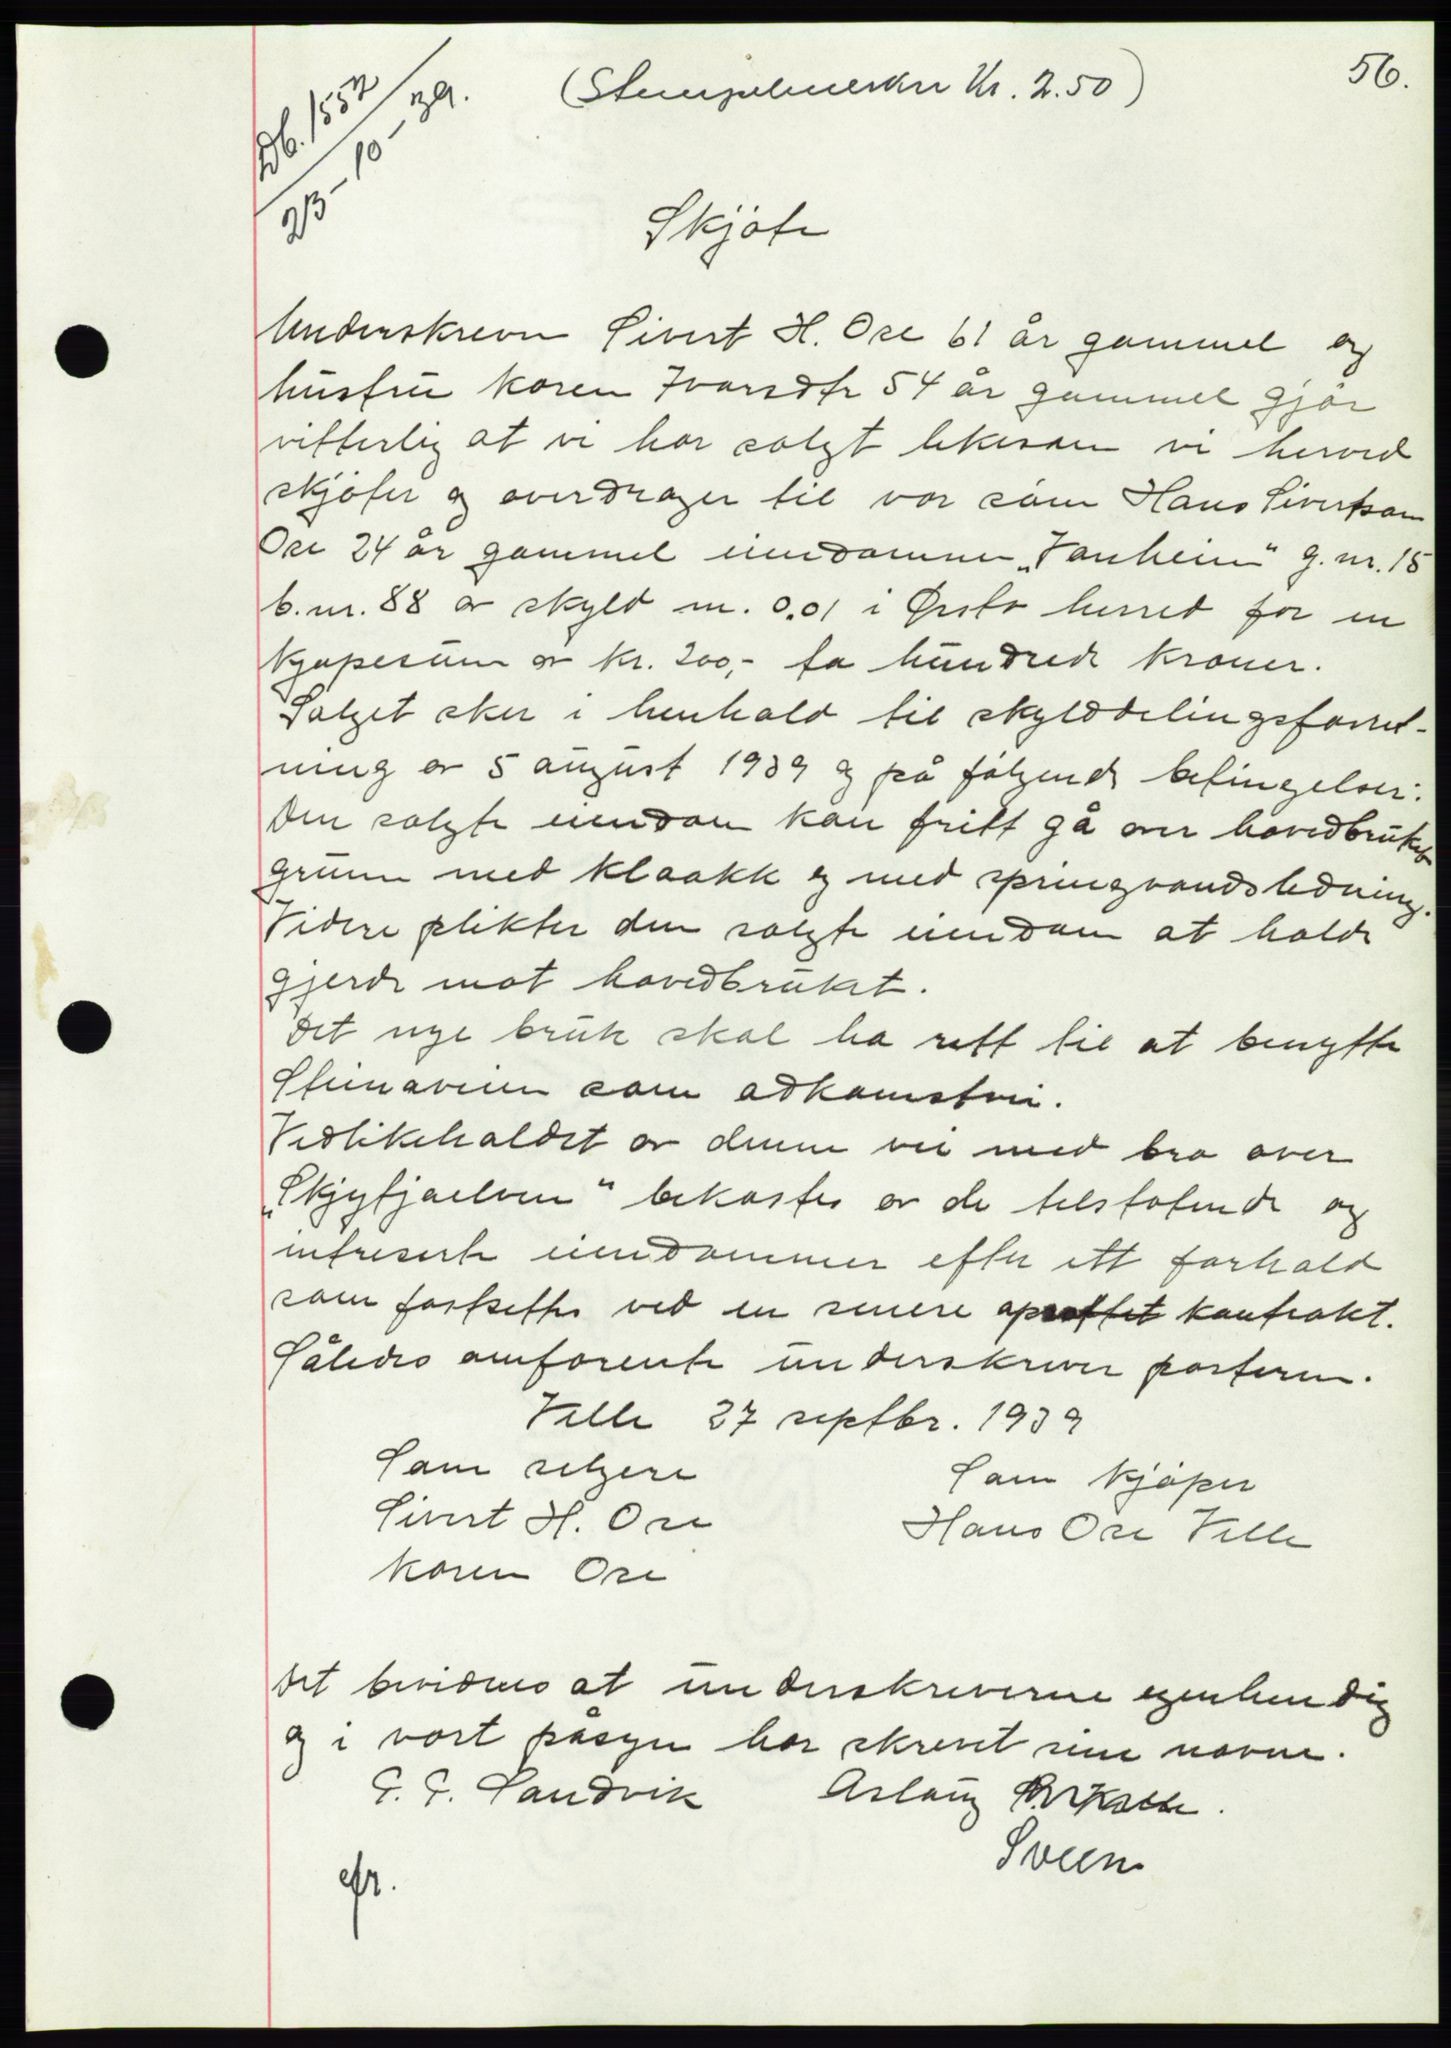 56.
Db. 1552
23-10-39.
(Stempelmerker Kr. 2.50)
Skjøte
Underskrevne Sivert H. Ose 61 år gammel og
hustru Karen Ivarsdtr 54 år gammel gjør
vitterlig at vi har solgt likesom vi herved
skjøter og overdrager til vor sønn Hans Sivertsen
Ose 24 år gammel eiendommen „Vonheim" g.nr. 15
b.nr. 88 av skyld m. 0.01 i Ørsta herred for en
kjøpesum av kr. 200,- to hundrede kroner.
Salget sker i henhold til skylddelingsforret-
ning av 5 august 1939 og på følgende betingelser:
Den solgte eiendom kan fritt gå over hovedbrukets
grunn med kloakk og med springvandsledning.
Videre plikter den solgte eiendom at holde
gjerde mot hovedbruket.
Det nye bruk skal ha rett til at benytte
Steinaveien som adkomstvei.
Vedlikeholdet av denne vei med bro over
„Skjytjaelven" bekostes av de tilstøtende og
intreserte eiendommer efter ett forhold
som fastsettes ved en senere kontrakt.
Således omforente underskriver partene.
Velle 27 septbr. 1939
Som selgere
Som kjøper
Sivert H. Ose
Hans Ose Velle
Karen Ose
Det bevidnes at underskriverne egenhendig
og i vort påsyn har skrevet sine navne.
Sandvik Aslaug
Sveen